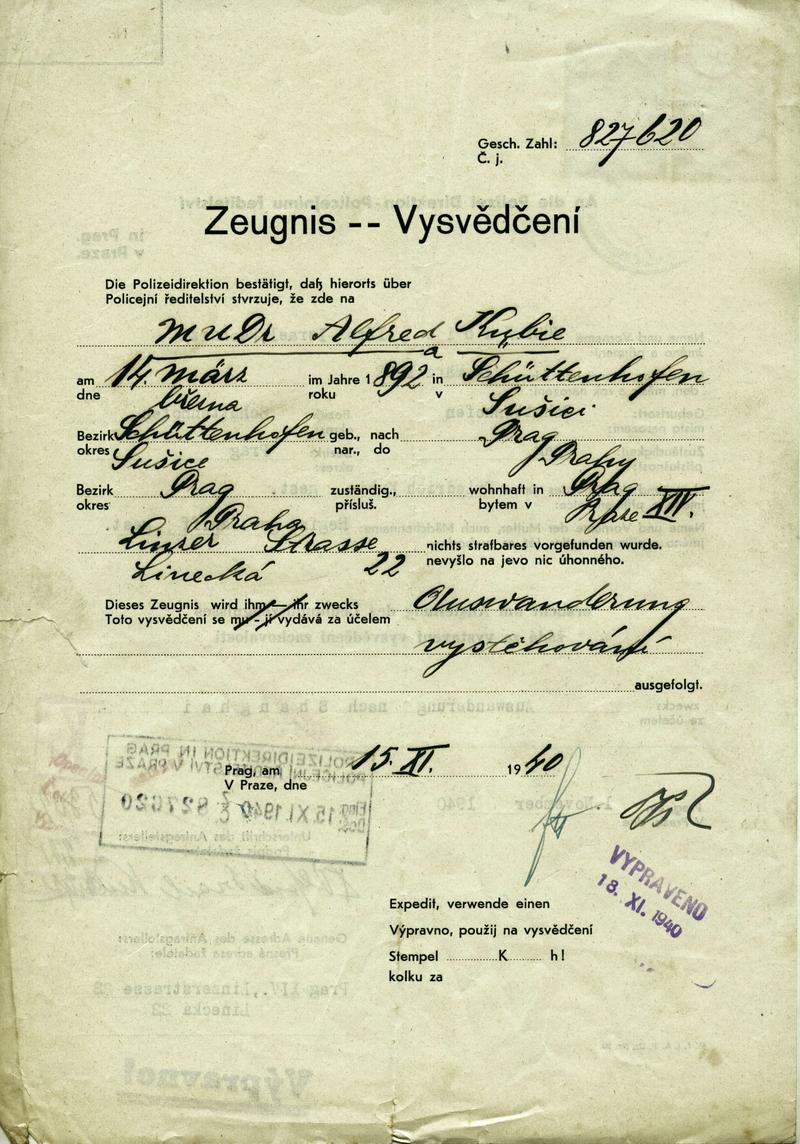 Gesch. Zahl: 827620
Č. j.
Zeugnis -- Vysvědčení
Die Polizeidirektion bestätigt, daß hierorts über
Policejní ředitelství stvrzuje, že zde na
MUDr Alfred Kubie
a
am 14. März im Jahre 1892 in Schüttenhofen
dne března roku v Sušici
Bezirk Schüttenhofen geb., nach Prag
okres Sušice nar., do Prahy
Bezirk Prag zuständig., wohnhaft in Prag
okres Praha přísluš. bytem v Praze XIV.
Linzer Strasse nichts strafbares vorgefunden wurde.
Linecká 22 nevyšlo na jevo nic úhonného.
Dieses Zeugnis wird ihm – ihr zwecks Auswanderung
Toto vysvědčení se mu - jí vydává za účelem
vystěhování
ausgefolgt.
Prag, am 15. XI. 1940
V Praze, dne
POLIZEIDIREKTION IN PRAG
POLICEJNÍ ŘEDITELSTVÍ V PRAZE
15 XI. 1940 827620
VYPRAVENO
18. XI. 1940
Expedit, verwende einen
Výpravno, použij na vysvědčení
Stempel K h!
kolku za
Auswanderung nach Shanghai
November 1940
Unterschrift des Antragstellers:
Genaue Adresse des Antragstellers:
Přesná adresa žadatele:
Prag XIV., Linzerstrasse 22
Linecka 22
Výpravno!